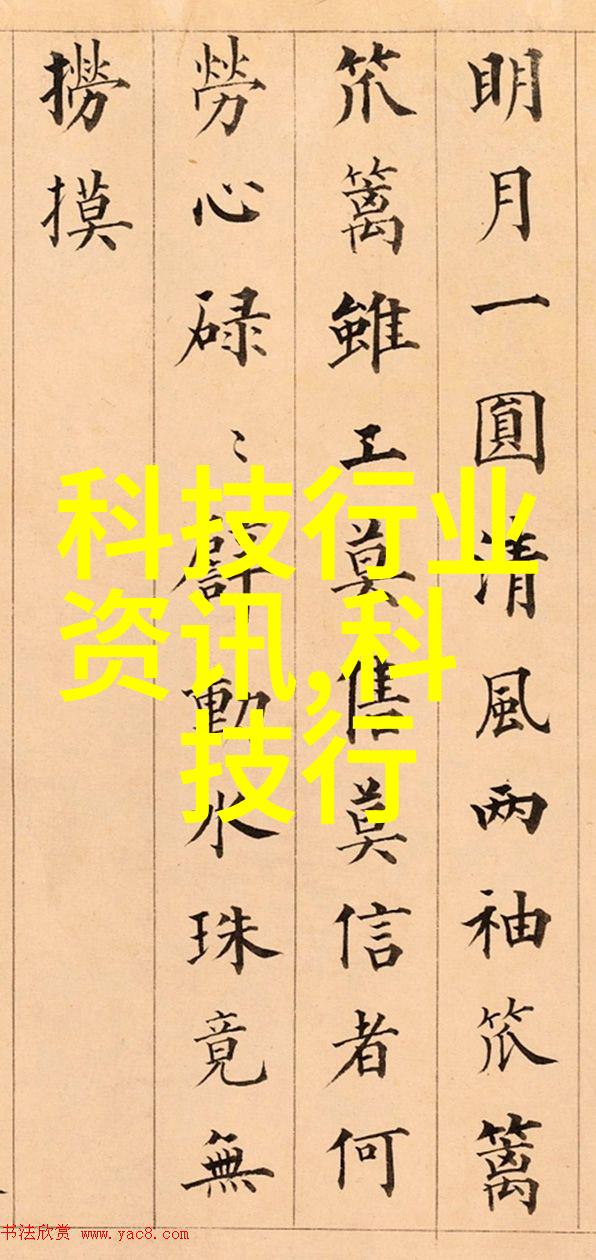 明月一圓清風两袖笊篱
笊篱雖工莫售莫信者何
勞心碌〻動水珠竟無
撈摸
科技行业
资讯,科
技行
书法欣赏 www.yac8.com